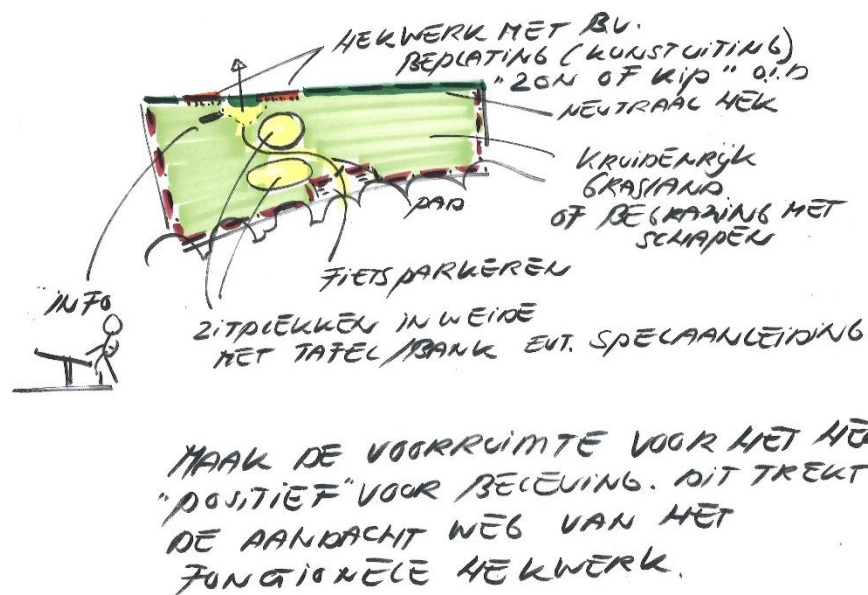 HEKWERK MET BV.
BEPLATING (KUNSTUITING)
"ZON OF KIP" O.I.D
NEUTRAAL HEK
KRUIDENRIJK
GRASLAND
OF BEGRAZING MET
SCHAPEN
PAD
FIETSPARKEREN
INFO
ZITPLEKKEN IN WEIDE
MET TAFEL/BANK EVT. SPELAANLEIDING
MAAK DE VOORRUIMTE VOOR HET HE
"POSITIEF" VOOR BELEVING. DIT TREKT
DE AANDACHT WEG VAN HET
FUNCTIONELE HEKWERK.